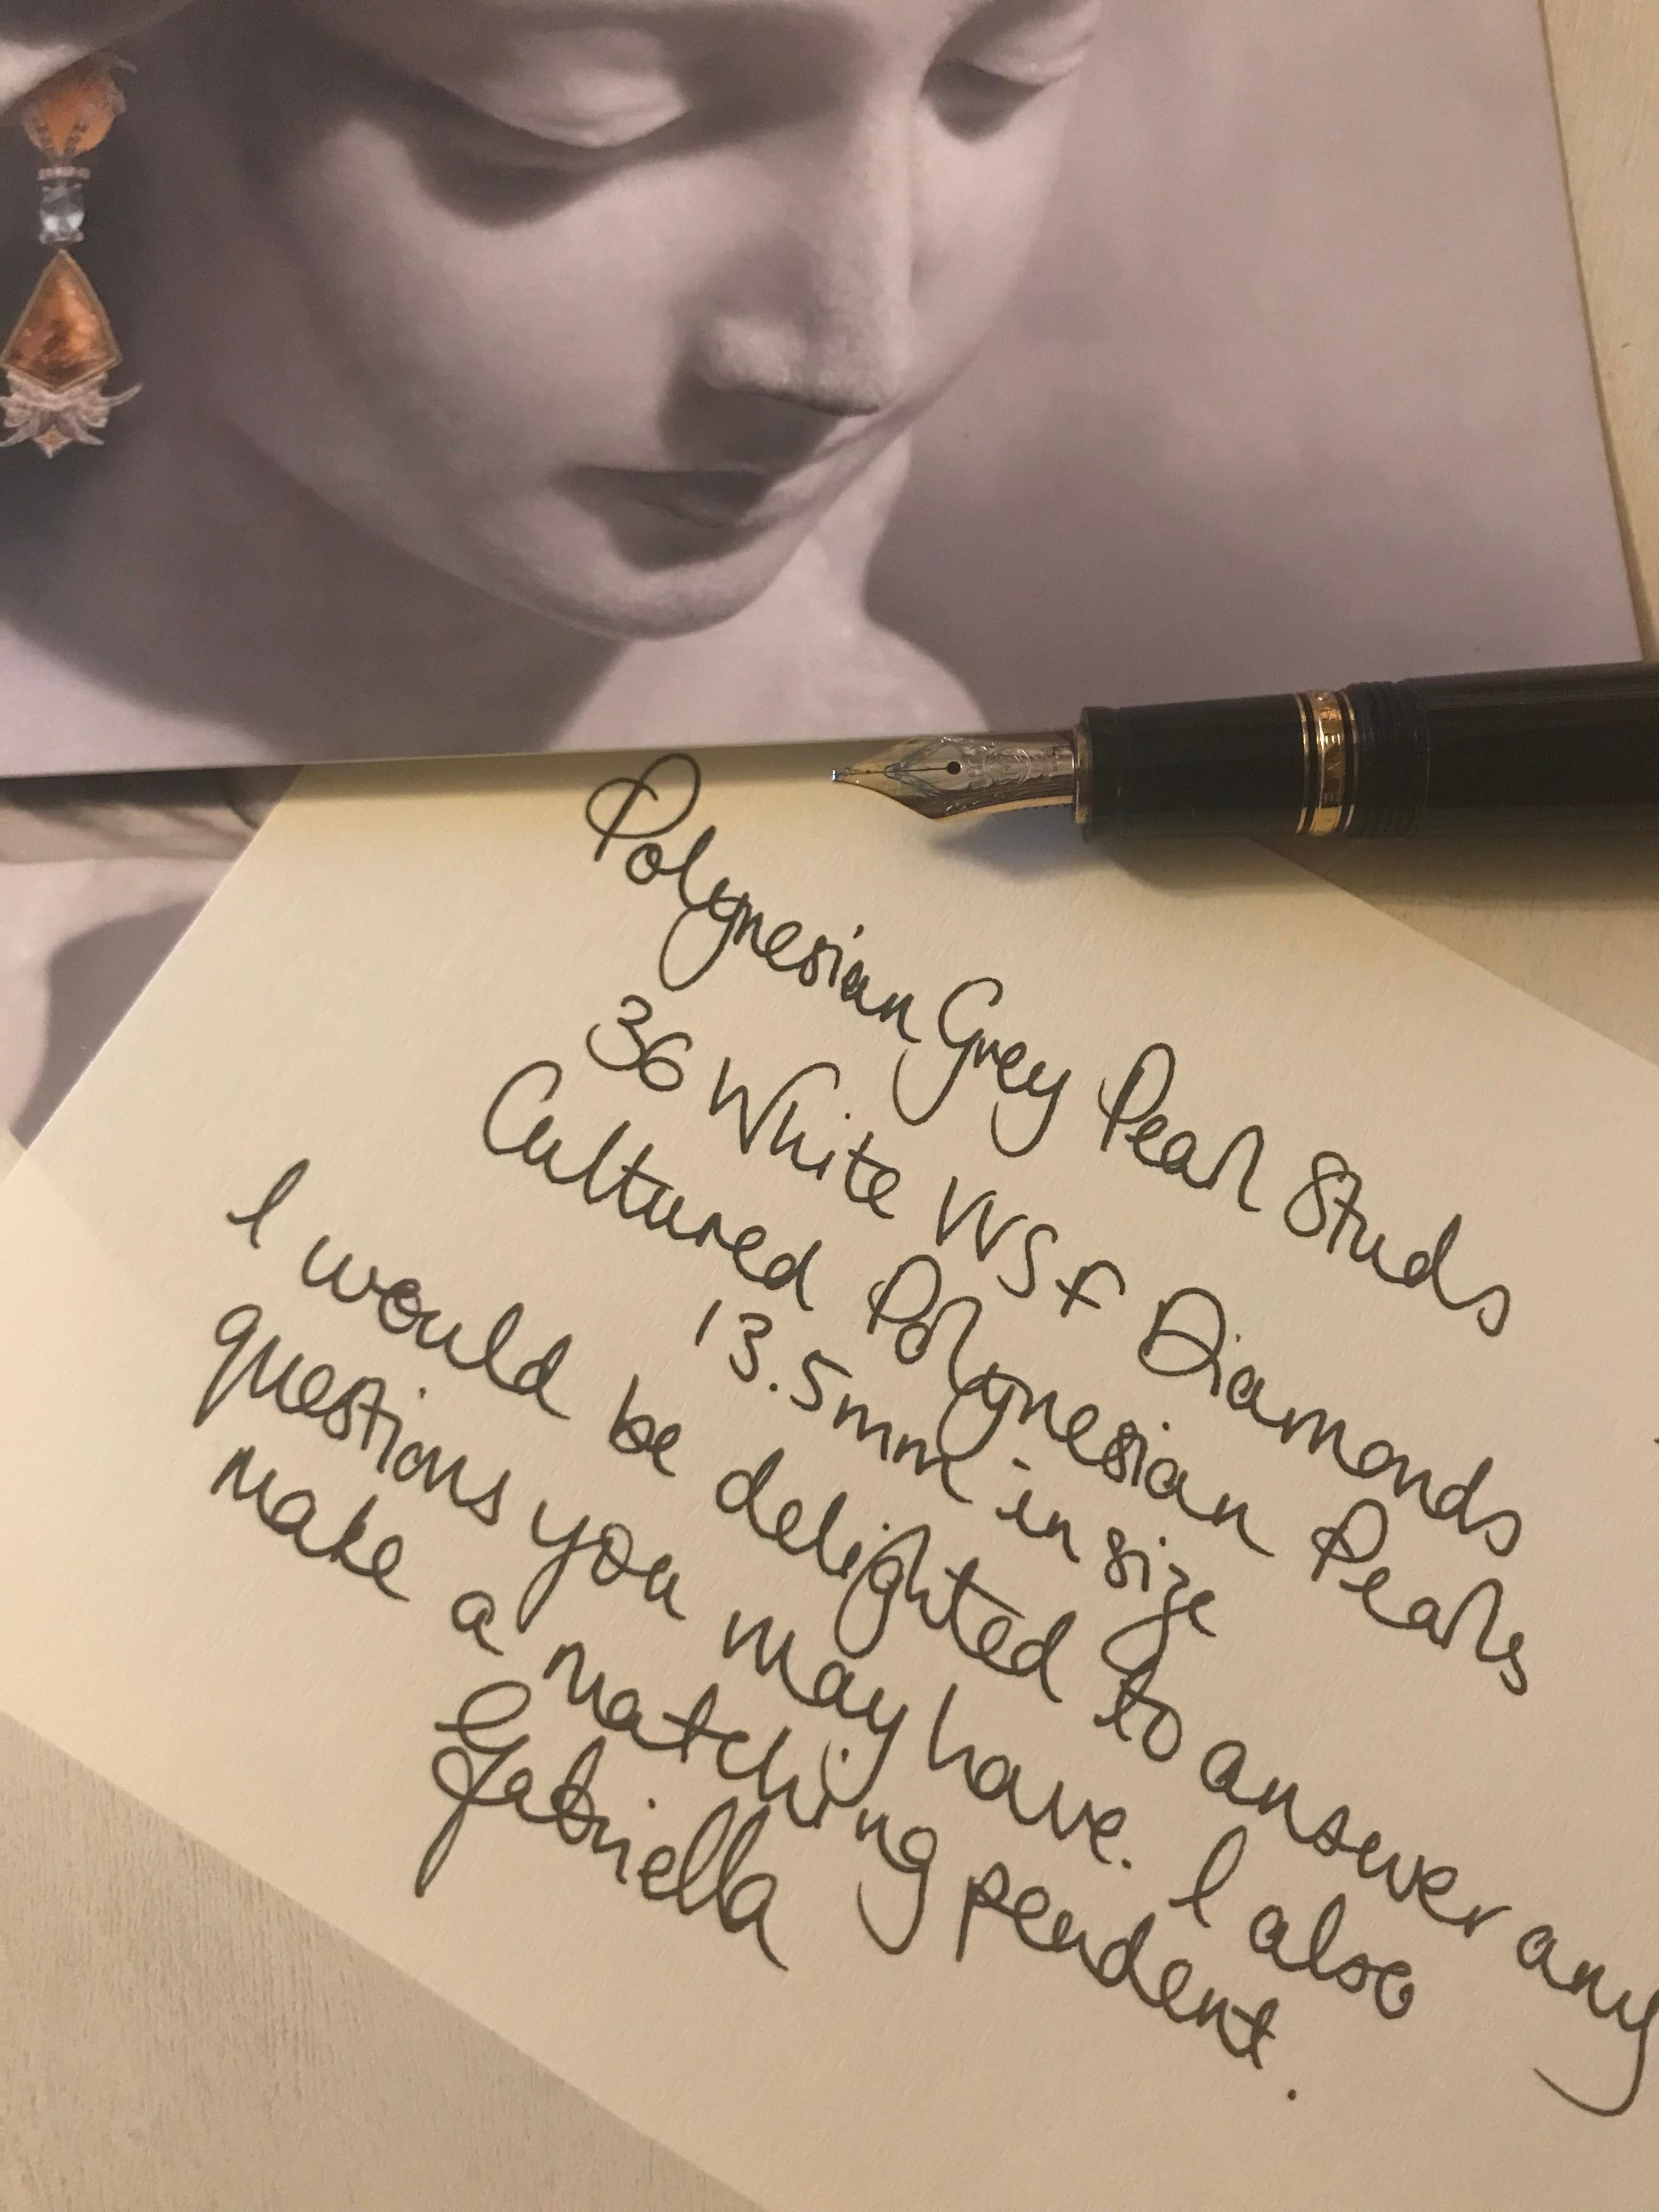 Polynesian Grey Pearl Studs
36 White VVS F Diamonds
Cultured Polynesian Pearls
13.5mm in size
I would be delighted to answer any
questions you may have. I also
make a matching pendent.
Gabriella